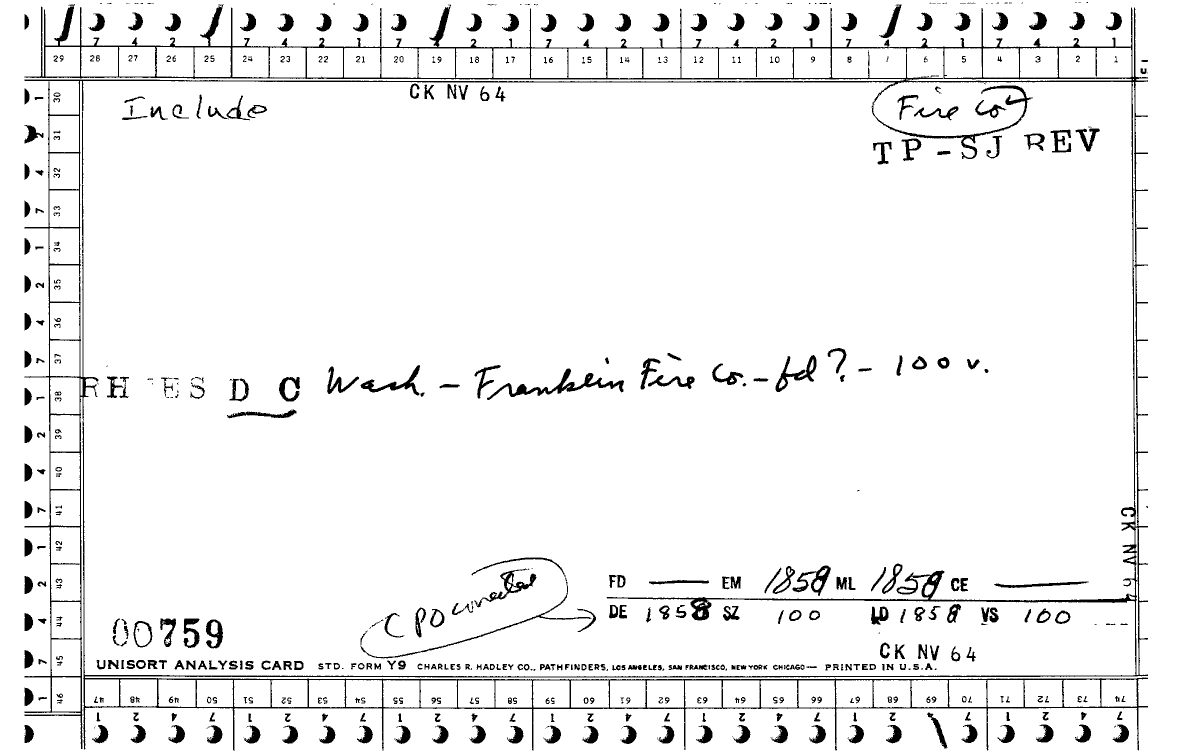 7 4 2 1 7 4 2 1 7 4 2 1 7 4 2 1 7 4 2 1 7 4 2 1 7 4 2 1
29 28 27 26 25 24 23 22 21 20 19 18 17 16 15 14 13 12 11 10 9 8 7 6 5 4 3 2 1
CK NV 64
Include
Fire Co
TP-SJ REV
1 30
2 31
4 32
7 33
1 34
2 35
4 36
7 37
1 38
2 39
4 40
7 41
1 42
2 43
4 44
7 45
1 46
RH ES D C Wash. - Franklin Fire Co. - fd ? - 100 v.
CK NV 64
FD — EM 1858 ML 1858 CE —
CPO corrected
DE 1858 SZ 100 LD 1858 VS 100
00759
CK NV 64
UNISORT ANALYSIS CARD STD. FORM Y9 CHARLES R. HADLEY CO., PATHFINDERS, LOS ANGELES, SAN FRANCISCO, NEW YORK CHICAGO — PRINTED IN U.S.A.
47 48 49 50 51 52 53 54 55 56 57 58 59 60 61 62 63 64 65 66 67 68 69 70 71 72 73 74
1 2 4 7 1 2 4 7 1 2 4 7 1 2 4 7 1 2 4 7 1 2 4 7 1 2 4 7